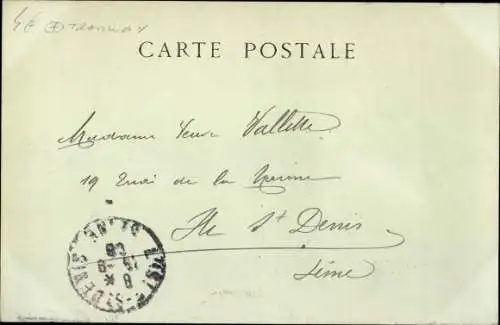 TRAMWAY
CARTE POSTALE
Madame Veuve Vallette
19 Quai de la Marine
Ile St Denis
Seine